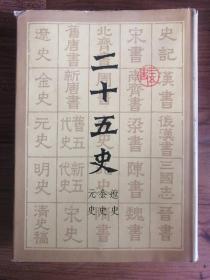 二十五史
遼史
金史
元史
史記
漢書
後漢書
三國志
晉書
宋書
南齊書
梁書
陳書
魏書
北齊書
舊唐書
新唐書
舊五代史
新五代史
宋史
遼史
金史
元史
明史
清史稿